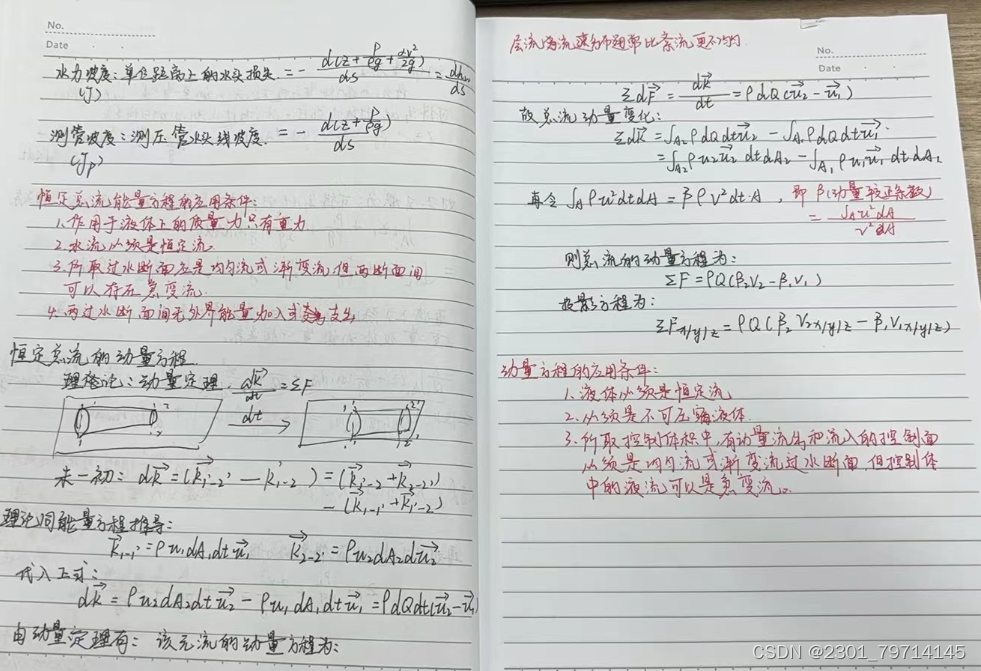 No.
Date
水力坡度：单位距离上的水头损失 = - d(z + p/ρg + αv²/2g)/ds = dhw/ds
(J)
测管坡度：测压管水头线坡度. = - d(z + p/ρg)/ds
(Jp)
恒定总流能量方程的应用条件：
1. 作用于液体上的质量力只有重力
2. 水流必须是恒定流
3. 所取过水断面应是均匀流或渐变流, 但两断面间
可以存在急变流.
4. 两过水断面间无外界能量加入或支出
恒定总流的动量方程
理论：动量定理. dk⃗/dt = ΣF
dt
末-初：dk⃗ = (k⃗1'-2' - k1-2) = (k⃗1'-2 + k⃗2-2')
- (k⃗1-1' + k⃗1'-2)
理论同能量方程推导：
k⃗1-1' = ρu1dA1dtu⃗1 k⃗2-2' = ρu2dA2dtu⃗2
代入上式：
dk⃗ = ρu2dA2dtu⃗2 - ρu1dA1dtu⃗1 = ρdQdt(u⃗2 - u⃗1)
由动量定理有：该元流的动量方程为：
层流流速分布通常比紊流更不均匀
No.
Date
ΣdF⃗ = dk⃗/dt = ρdQ(u⃗2 - u⃗1)
故总流动量变化：
Σdk⃗ = ∫A2 ρdQdtu⃗2 - ∫A1 ρdQdtu⃗1
= ∫A2 ρu2u⃗2dtdA2 - ∫A1 ρu1u⃗1dtdA1
再令 ∫A ρu²dtdA = βρv²dt·A, 即β(动量校正系数)
= ∫A u²dA / v²dA
则总流的动量方程为：
ΣF = ρQ(β2V2 - β1V1)
投影方程为：
ΣFx/y/z = ρQ(β2V2x/y/z - β1V1x/y/z)
动量方程的应用条件：
1. 液体必须是恒定流
2. 必须是不可压缩液体
3. 所取控制体积中, 有动量流出和流入的控制面
必须是均匀流或渐变流过水断面, 但控制体
中的液流可以是急变流。
CSDN @2301_79714145